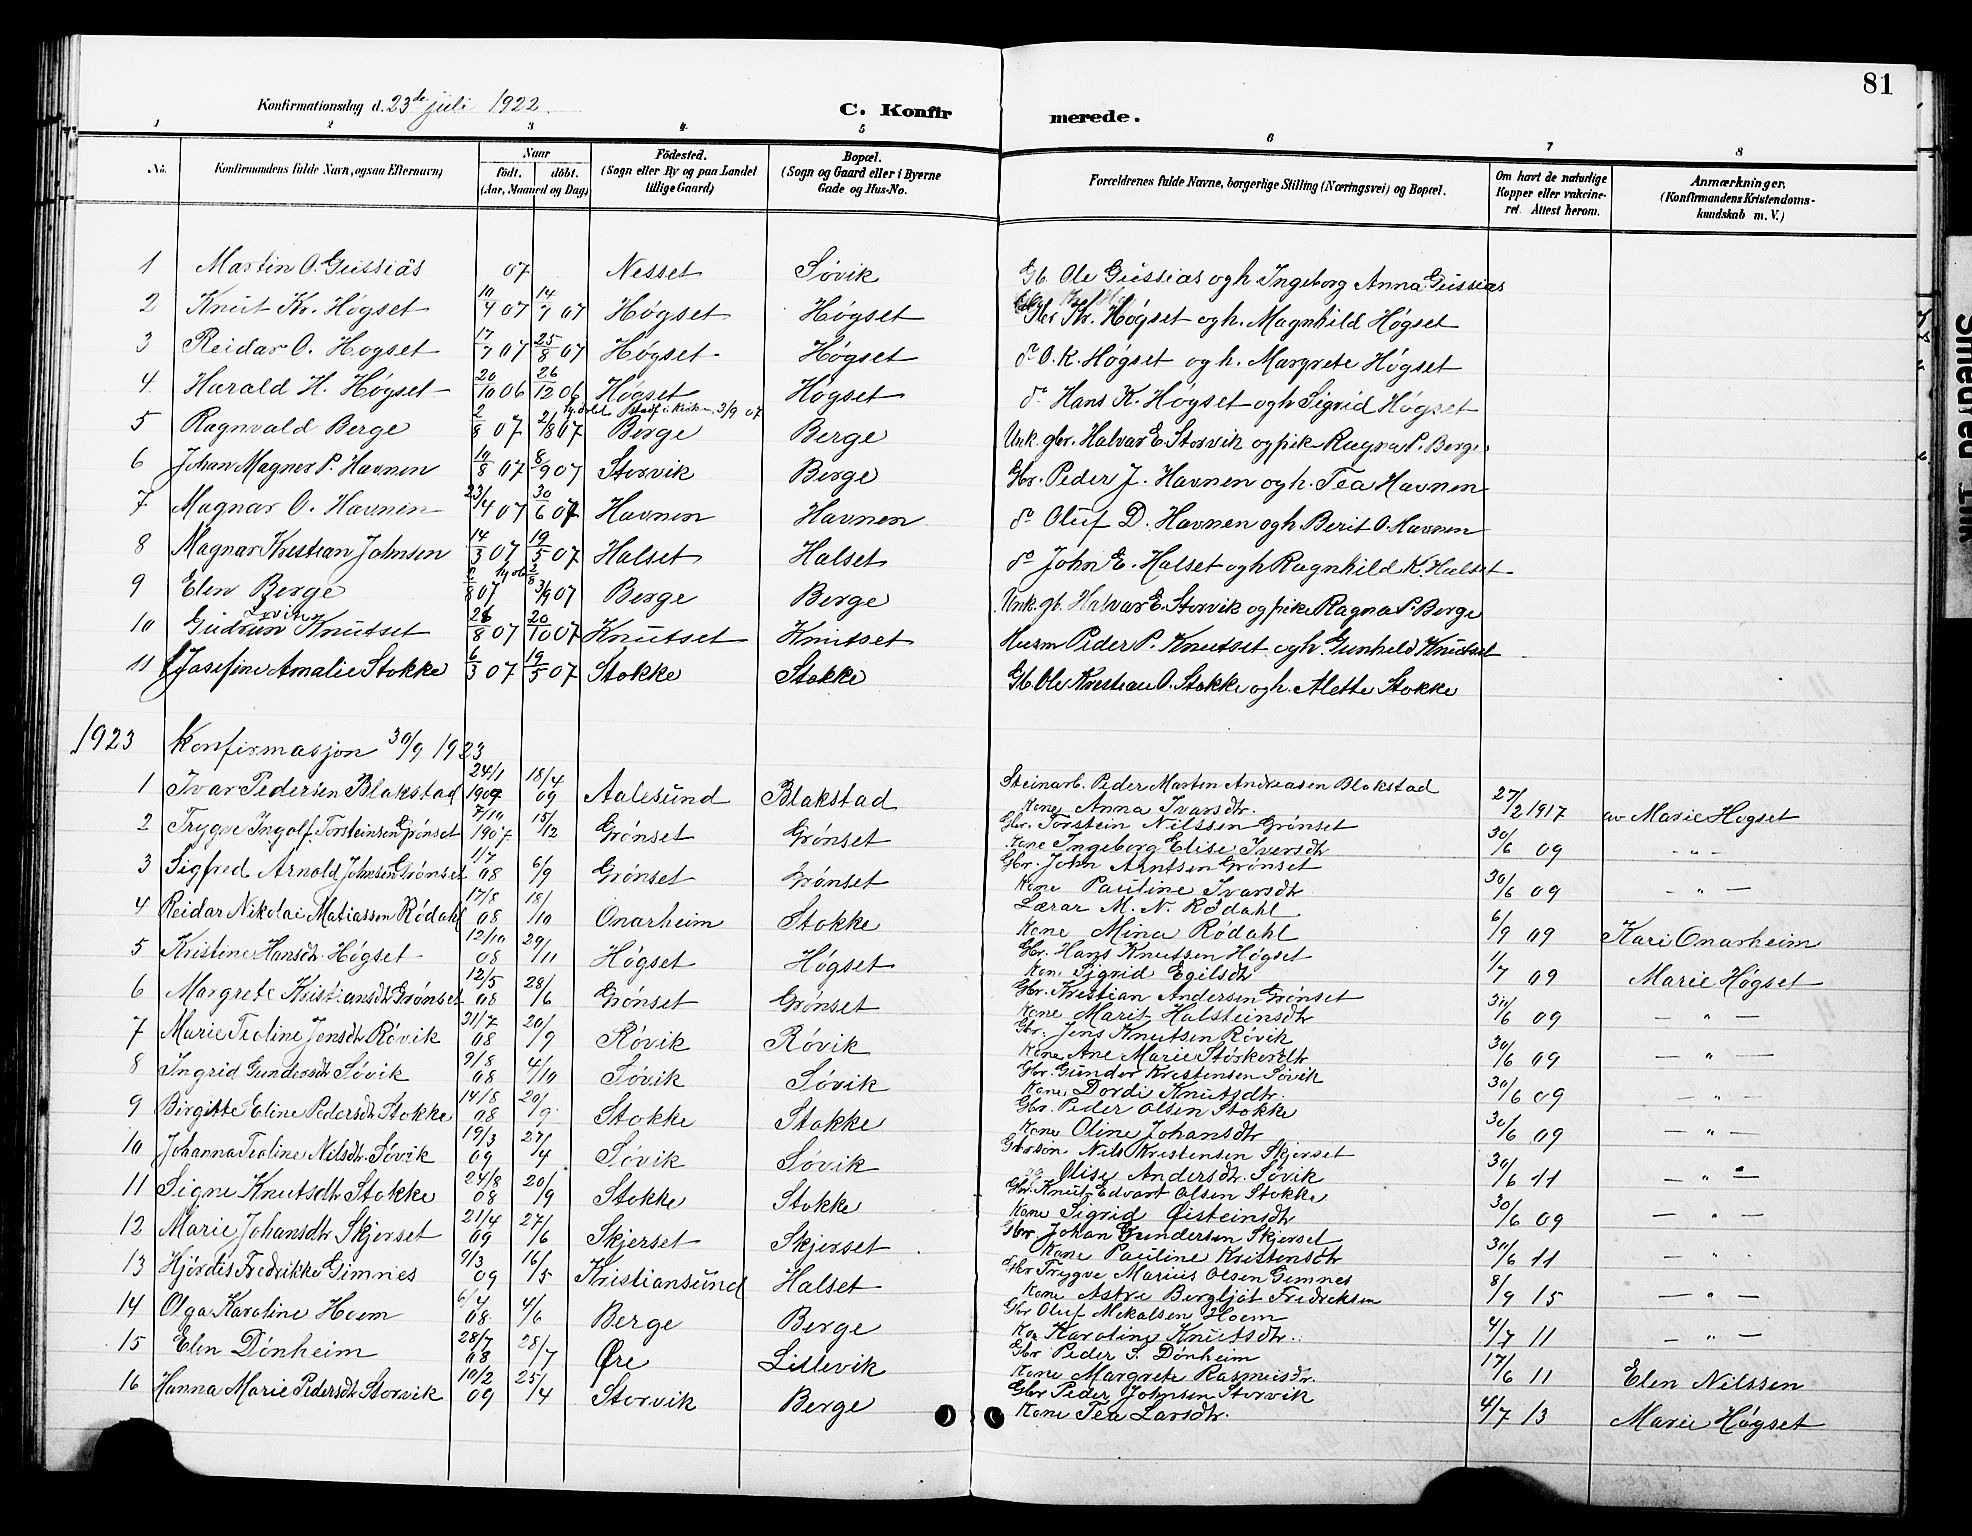 81
Konfirmationsdag d. 23de juli 1922
C. Konfirmerede.
1 2 3 4. 5 6 7 8
No. Konfirmandens fulde Navn, ogsaa Efternavn) Naar født. døbt. (Aar, Maaned og Dag) Fødested. (Sogn eller By og paa Landet tillige Gaard) Bopæl. (Sogn og Gaard eller i Byerne Gade og Hus-No. Forældrenes fulde Navne, borgerlige Stilling (Næringsvei) og Bopæl. Om havt de naturlige Kopper eller vakcineret. Attest herom. Anmærkninger. (Konfirmandens Kristendomskundskab m. V.)
1 Martin O. Gussiås 07 Nesset Søvik Gb. Ole Gussias og h Ingeborg Anna Gussias
2 Knut Kr. Høgset 10/4 07 14/7 07 Høgset Høgset Gbr Kr. Høgset og h. Magnhild Høgset
3 Reidar O. Høgset 17/7 07 25/8 07 Høgset Høgset do O. K. Høgset og h. Margrete Høgset
4. Harald H. Høgset 20/10 06 26/12 06 Høgset Høgset do Hans K. Høgset og h Sigrid Høgset
5 Ragnvald Berge 2/8 07 2/8 07 hj.døbt Stadf. i kirken 3/9 07 Berge Berge Unk. gbr. Halvar E. Storvik og pik Ragna P. Berge
6 Johan Magner P. Havnen 10/8 07 8/9 07 Storvik Berge Gbr. Peder J. Havnen og h. Tea Havnen
7 Magnar O. Havnen 23/4 07 30/6 07 Havnen Havnen do Oluf D. Havnen og h Berit O. Havnen
8 Magnar Kristian Johnsen 14/3 07 19/5 07 Halset Halset do John E. Halset og h Ragnhild K. Halset
9 Elen Berge 2/8 07 hj.døbt 2/8 3/9 07 Berge Berge Unk. gb. Halvar E. Storvik og pike Ragna P. Berge
10 Gudrun Knutset 26/8 07 20/10 07 Knutset Knutset Husm Peder P. Knutset og h. Gunhild Knutset
11 Josefine Amalie Stokke 6/3 07 19/5 07 Stokke Stokke Gb. Ole Kristian O. Stokke og h. Alette Stokke
1923 Konfirmasjon 30/9 1923
1 Ivar Pedersen Blakstad 24/1 1909 18/4 09 Aalesund Blakstad Steinarb. Peder Martin Andreasen Blakstad
Kone Anna Ivarsdtr. 27/2 1917 av Marie Høgset
2 Trygve Ingolf Torsteinsen Grønset 7/10 1907 15/12 Grønset Grønset Gbr. Torstein Nilssen Grønset
Kone Ingeborg Elise Iversdtr 30/6 09 — " —
3 Sigfred Arnold Johnsen Grønset 1/7 08 6/9 Grønset Grønset Gbr. John Arntsen Grønset
Kone Pauline Ivarsdtr 30/6 09 — " —
4 Reidar Nikolai Matiassen Rødahl 17/8 08 18/10 Onarheim Stokke Lærar M. N. Rødahl
Kone Mina Rødahl 6/9 09 Kari Onarheim
5 Kristine Hansdtr. Høgset 12/10 08 29/11 Høgset Høgset Gbr. Hans Knutsen Høgset
Kone Sigrid Egilsdtr 1/7 09 Marie Høgset
6 Margrete Kristiansdtr Grønset 12/5 08 28/6 Grønset Grønset Gbr. Kristian Andersen Grønset
Kone Marit Halsteinsdtr 30/6 09 — " —
7 Marie Teoline Jensdtr Røvik 31/7 08 20/9 Røvik Røvik Gbr. Jens Knutsen Røvik
Kone Ane Marie Størkersdtr 30/6 09 — " —
8 Ingrid Gundersdtr Søvik 9/8 08 4/10 Søvik Søvik Gbr. Gunder Kristensen Søvik
Kone Dordi Knutsdtr. 30/6 09 — " —
9 Birgitte Eline Pedersdtr Stokke 14/8 08 20/9 Stokke Stokke Gbr. Peder Olsen Stokke
Kone Oline Johansdtr 30/6 09 — " —
10 Johanna Teoline Nilsdtr. Søvik 19/3 09 27/4 Søvik Søvik Gbrsøn Nils Kristensen Skjerset
og Elise Andersdtr Søvik 30/6 11 — " —
11 Signe Knutsdtr Stokke 24/8 08 20/9 Stokke Stokke Gbr. Knut Edvart Olsen Stokke
Kone Sigrid Øisteinsdtr 30/6 09 — " —
12 Marie Johansdtr Skjerset 21/4 09 27/6 Skjerset Skjerset Gbr Johan Gundersen Skjerset
Kone Pauline Kristensdtr 30/6 11 — " —
13 Hjørdis Fredrikke Gimnes 9/3 09 16/5 Kristiansund Halset Gbr Trygve Marius Olsen Gimnes
Kone Astri Bergljot Fredriksen 8/9 15 — " —
14 Olga Karoline Hoem 6/4 08 4/6 Berge Berge Gbr Oluf Mikalsen Hoem
Kone Karoline Knutsdtr. 4/7 11 — " —
15 Elen Dønheim 28/7 08 28/7 Øre Lillevik Gbr Peder S. Dønheim
Kone Margrete Rasmusdtr. 17/6 11 Elen Nilssen
16 Hanna Marie Pedersdtr Storvik 10/2 09 25/4 Storvik Berge Gbr Peder Johnsen Storvik
Kone Tea Larsdtr. 4/7 13 Marie Høgset